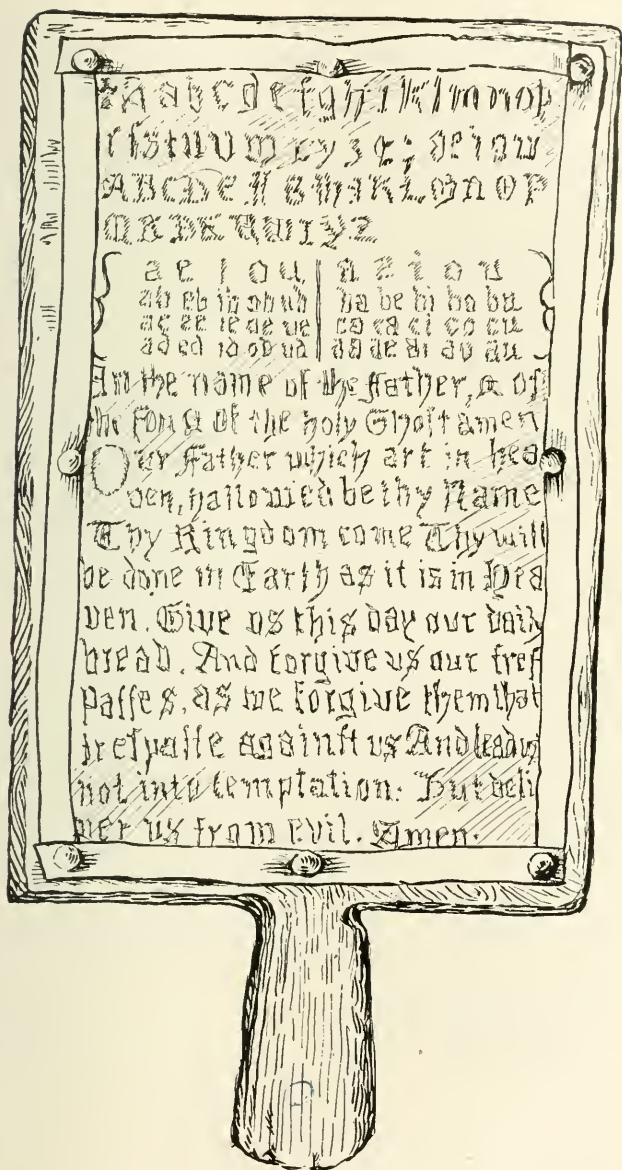 A a b c d e f g h i k l m n o p
r ſ s t u v w x y z & ; a e i o u
A B C D E F G H I K L M N O P
Q R S T U W X Y Z
a e i o u a e i o u
ab eb ib ob ub ba be bi bo bu
ac ec ic oc uc ca ce ci co cu
ad ed id od ud da de di do du
In the name of the Father, & of
the ſon & of the holy Ghoſt amen
Our Father which art in hea
ven, hallowed be thy Name
Thy Kingdom come Thy will
be done in Earth as it is in Hea
ven. Give us this day our daily
bread. And forgive us our treſ
paſſes, as we forgive them that
treſpaſſe againſt us And lead us
not into temptation: But deli
ver us from evil. Amen.